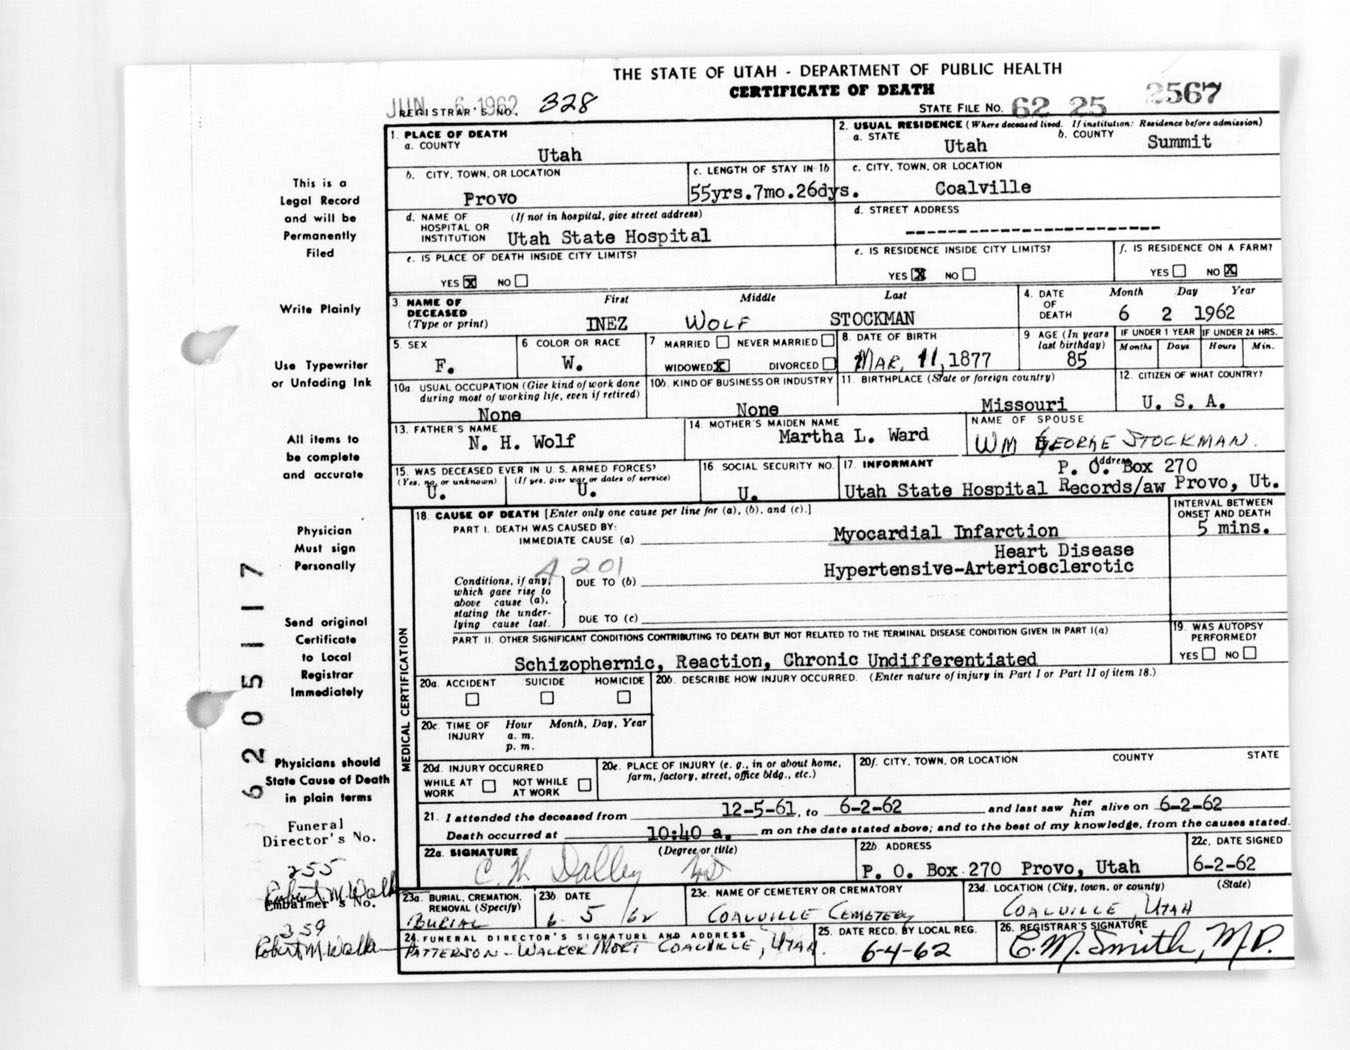 THE STATE OF UTAH - DEPARTMENT OF PUBLIC HEALTH
CERTIFICATE OF DEATH
JUN 6 1962
REGISTRAR'S NO. 328
STATE FILE NO. 62 25 2567
This is a
Legal Record
and will be
Permanently
Filed
Write Plainly
Use Typewriter
or Unfading Ink
All items to
be complete
and accurate
Physician
Must sign
Personally
Send original
Certificate
to Local
Registrar
Immediately
Physicians should
State Cause of Death
in plain terms
Funeral
Director's No.
255
Robert M. Walker
Embalmer's No.
359
Robert M. Walker
6205117
1. PLACE OF DEATH
a. COUNTY
Utah
2. USUAL RESIDENCE (Where deceased lived. If institution: Residence before admission)
a. STATE
Utah
b. COUNTY
Summit
b. CITY, TOWN, OR LOCATION
Provo
c. LENGTH OF STAY IN 1b
55yrs.7mo.26dys.
c. CITY, TOWN, OR LOCATION
Coalville
d. NAME OF HOSPITAL OR INSTITUTION (If not in hospital, give street address)
Utah State Hospital
d. STREET ADDRESS
------------------------
e. IS PLACE OF DEATH INSIDE CITY LIMITS?
YES X NO
e. IS RESIDENCE INSIDE CITY LIMITS?
YES X NO
f. IS RESIDENCE ON A FARM?
YES NO X
3. NAME OF DECEASED (Type or print)
First Middle Last
INEZ WOLF STOCKMAN
4. DATE OF DEATH
Month Day Year
6 2 1962
5. SEX
F.
6 COLOR OR RACE
W.
7 MARRIED NEVER MARRIED
WIDOWED X DIVORCED
8. DATE OF BIRTH
MAR. 11, 1877
9 AGE (In years last birthday)
85
IF UNDER 1 YEAR
Months Days
IF UNDER 24 HRS.
Hours Min.
10a. USUAL OCCUPATION (Give kind of work done during most of working life, even if retired)
None
10b. KIND OF BUSINESS OR INDUSTRY
None
11. BIRTHPLACE (State or foreign country)
Missouri
12. CITIZEN OF WHAT COUNTRY?
U. S. A.
13. FATHER'S NAME
N. H. Wolf
14. MOTHER'S MAIDEN NAME
Martha L. Ward
NAME OF SPOUSE
WM GEORGE STOCKMAN.
15. WAS DECEASED EVER IN U. S. ARMED FORCES?
(Yes, no, or unknown) (If yes, give war or dates of service)
U. U.
16. SOCIAL SECURITY NO.
U.
17. INFORMANT Address
P. O. Box 270
Utah State Hospital Records/aw Provo, Ut.
MEDICAL CERTIFICATION
18. CAUSE OF DEATH [Enter only one cause per line for (a), (b), and (c).]
INTERVAL BETWEEN ONSET AND DEATH
PART I. DEATH WAS CAUSED BY:
IMMEDIATE CAUSE (a) Myocardial Infarction
5 mins.
Heart Disease
A 201
Conditions, if any, which gave rise to above cause (a), stating the underlying cause last.
DUE TO (b) Hypertensive-Arteriosclerotic
DUE TO (c)
PART II. OTHER SIGNIFICANT CONDITIONS CONTRIBUTING TO DEATH BUT NOT RELATED TO THE TERMINAL DISEASE CONDITION GIVEN IN PART I(a)
Schizophernic, Reaction, Chronic Undifferentiated
19. WAS AUTOPSY PERFORMED?
YES NO
20a. ACCIDENT SUICIDE HOMICIDE
20b. DESCRIBE HOW INJURY OCCURRED. (Enter nature of injury in Part I or Part II of item 18.)
20c. TIME OF INJURY Hour Month, Day, Year
a. m.
p. m.
20d. INJURY OCCURRED
WHILE AT WORK NOT WHILE AT WORK
20e. PLACE OF INJURY (e. g., in or about home, farm, factory, street, office bldg., etc.)
20f. CITY, TOWN, OR LOCATION COUNTY STATE
21. I attended the deceased from 12-5-61, to 6-2-62 and last saw her him alive on 6-2-62
Death occurred at 10:40 a. m on the date stated above; and to the best of my knowledge, from the causes stated.
22a. SIGNATURE (Degree or title)
C H Dalley MD
22b. ADDRESS
P. O. Box 270 Provo, Utah
22c. DATE SIGNED
6-2-62
23a. BURIAL, CREMATION, REMOVAL (Specify)
BURIAL
23b. DATE
6 5 62
23c. NAME OF CEMETERY OR CREMATORY
COALVILLE CEMETERY
23d. LOCATION (City, town, or county) (State)
COALVILLE, UTAH
24. FUNERAL DIRECTOR'S SIGNATURE AND ADDRESS
PATTERSON-WALKER MORT COALVILLE, UTAH.
25. DATE RECD. BY LOCAL REG.
6-4-62
26. REGISTRAR'S SIGNATURE
C. M. Smith, M.D.